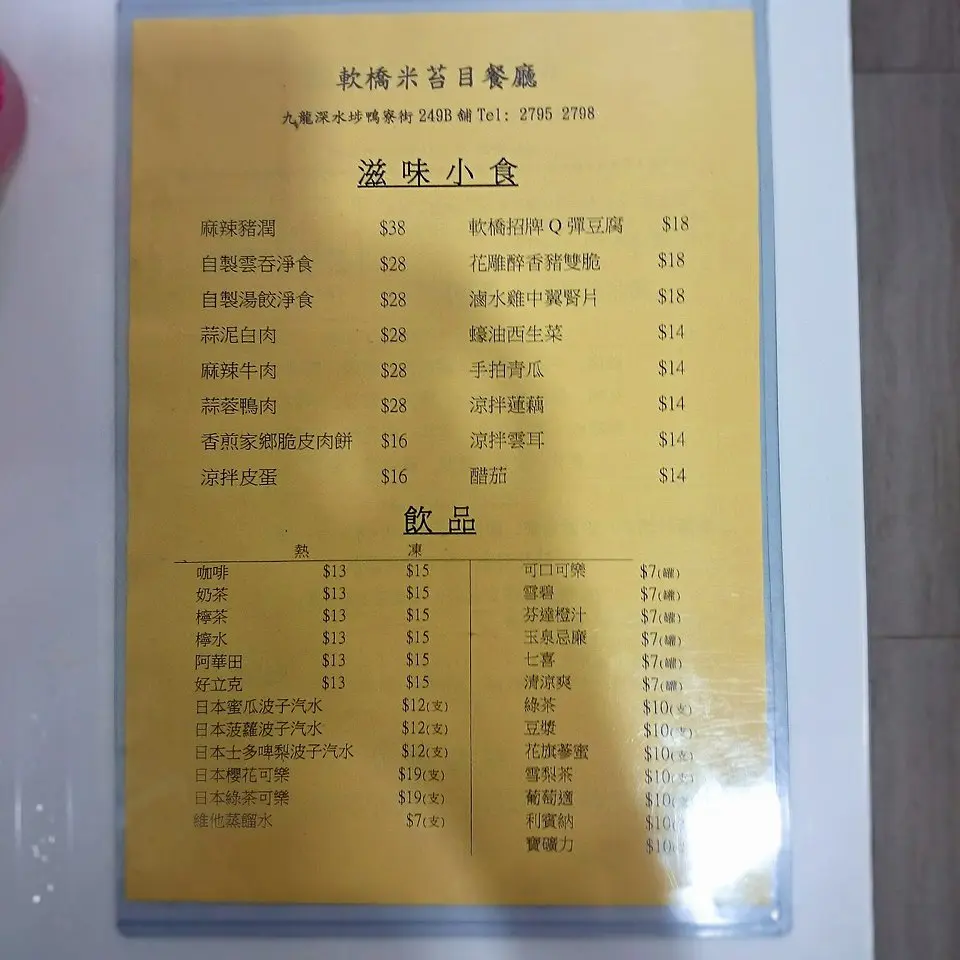 軟橋米苔目餐廳
九龍深水埗鴨寮街 249B 舖 Tel: 2795 2798
滋味小食
麻辣豬潤 $38 軟橋招牌 Q 彈豆腐 $18
自製雲吞淨食 $28 花雕醉香豬雙脆 $18
自製湯餃淨食 $28 滷水雞中翼腎片 $18
蒜泥白肉 $28 蠔油西生菜 $14
麻辣牛肉 $28 手拍青瓜 $14
蒜蓉鴨肉 $28 涼拌蓮藕 $14
香煎家鄉脆皮肉餅 $16 涼拌雲耳 $14
涼拌皮蛋 $16 醋茄 $14
飲品
熱 凍
咖啡 $13 $15 可口可樂 $7(罐)
奶茶 $13 $15 雪碧 $7(罐)
檸茶 $13 $15 芬達橙汁 $7(罐)
檸水 $13 $15 玉泉忌廉 $7(罐)
阿華田 $13 $15 七喜 $7(罐)
好立克 $13 $15 清涼爽 $7(罐)
日本蜜瓜波子汽水 $12(支) 綠茶 $10(支)
日本菠蘿波子汽水 $12(支) 豆漿 $10(支)
日本士多啤梨波子汽水 $12(支) 花旗蔘蜜 $10(支)
日本櫻花可樂 $19(支) 雪梨茶 $10(支)
日本綠茶可樂 $19(支) 葡萄適 $10
維他蒸餾水 $7(支) 利賓納 $10
寶礦力 $10